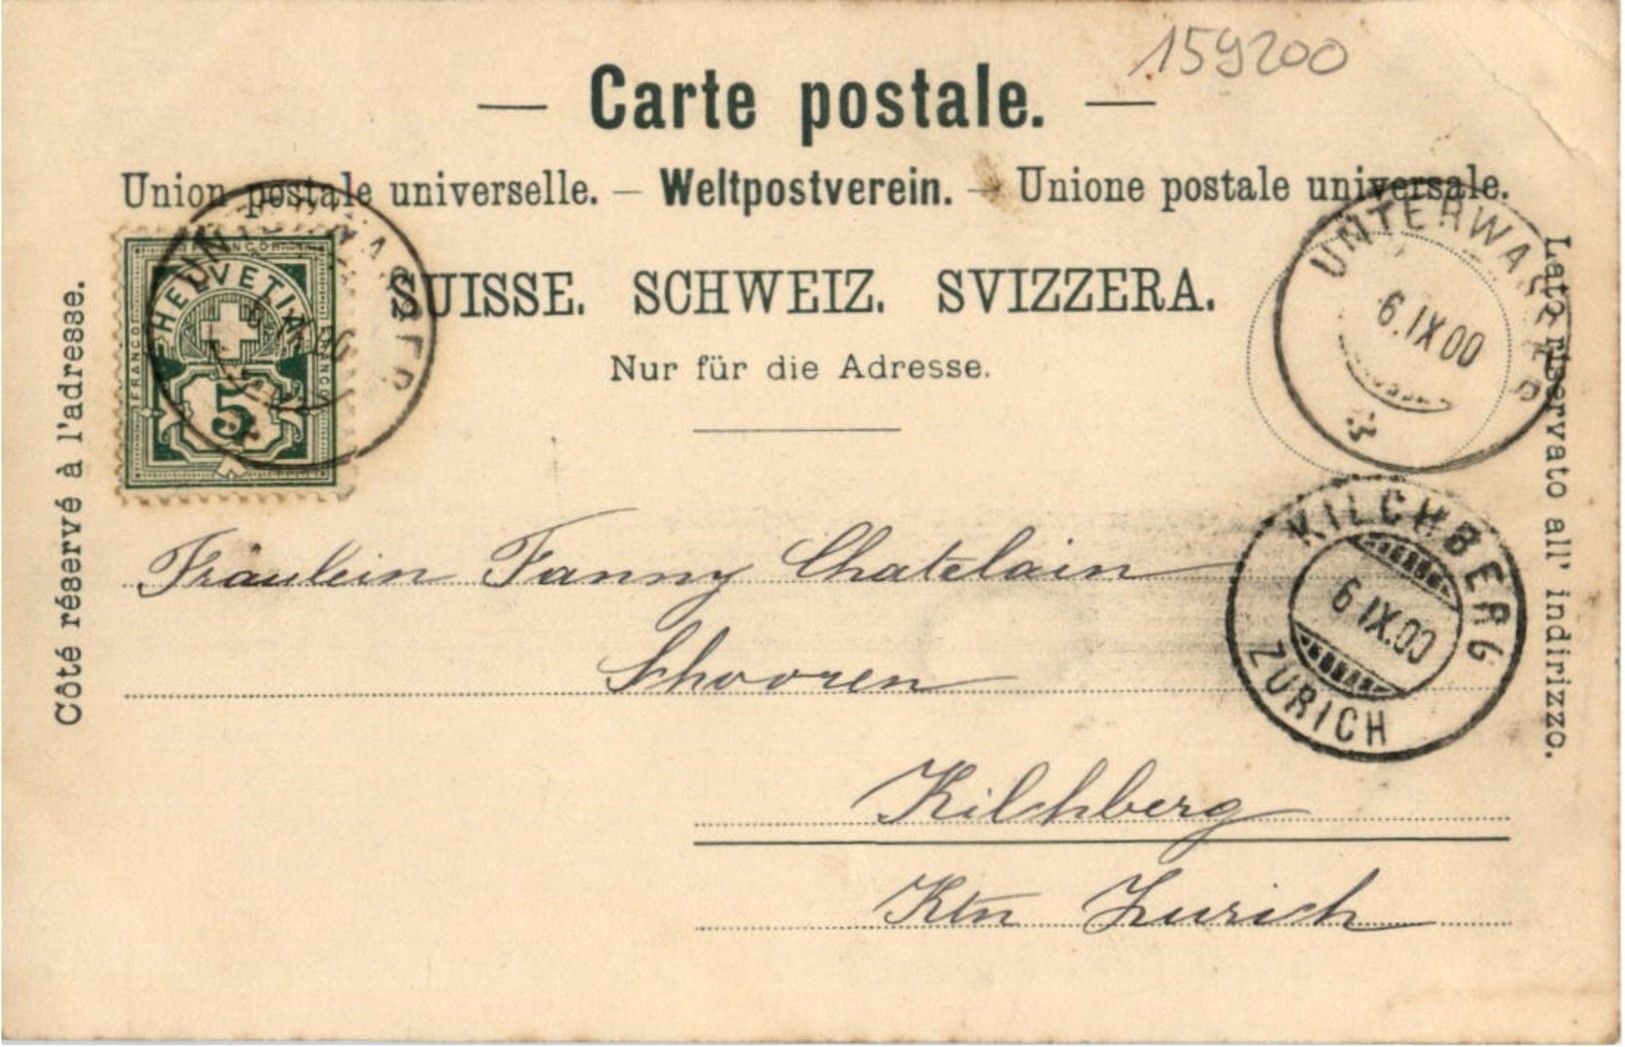 159200
— Carte postale. —
Union postale universelle. — Weltpostverein. — Unione postale universale.
SUISSE. SCHWEIZ. SVIZZERA.
Nur für die Adresse.
Côté réservé à l'adresse.
Lato riservato all' indirizzo.
FRANCO
HELVETIA
FRANCO
FRANCO
5
UNTERWASSER
UNTERWASSER
6.IX.00
KILCHBERG
6.IX.00
ZÜRICH
Fräulein Fanny Chatelain
Schooren
Kilchberg
Ktn Zürich